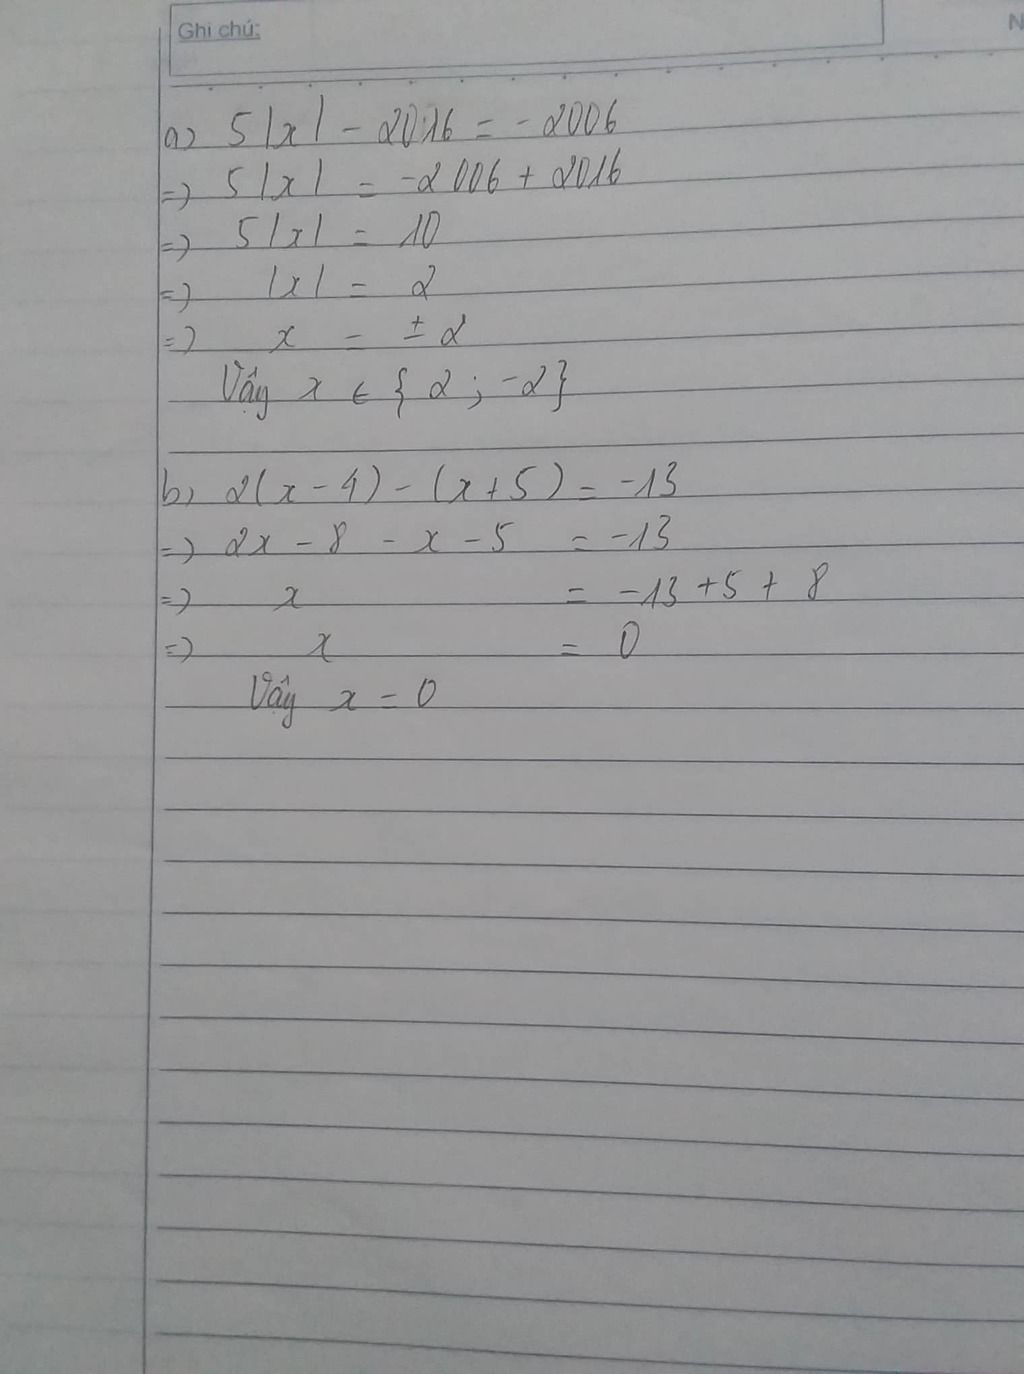 Ghi chú:
N
a) 5|x| - 2016 = - 2006
=> 5|x| = -2006 + 2016
=> 5|x| = 10
=> |x| = 2
=> x = ± 2
Vậy x ∈ { 2 ; -2}
b) 2(x - 4) - (x + 5) = -13
=> 2x - 8 - x - 5 = -13
=> x = -13 + 5 + 8
=> x = 0
Vậy x = 0